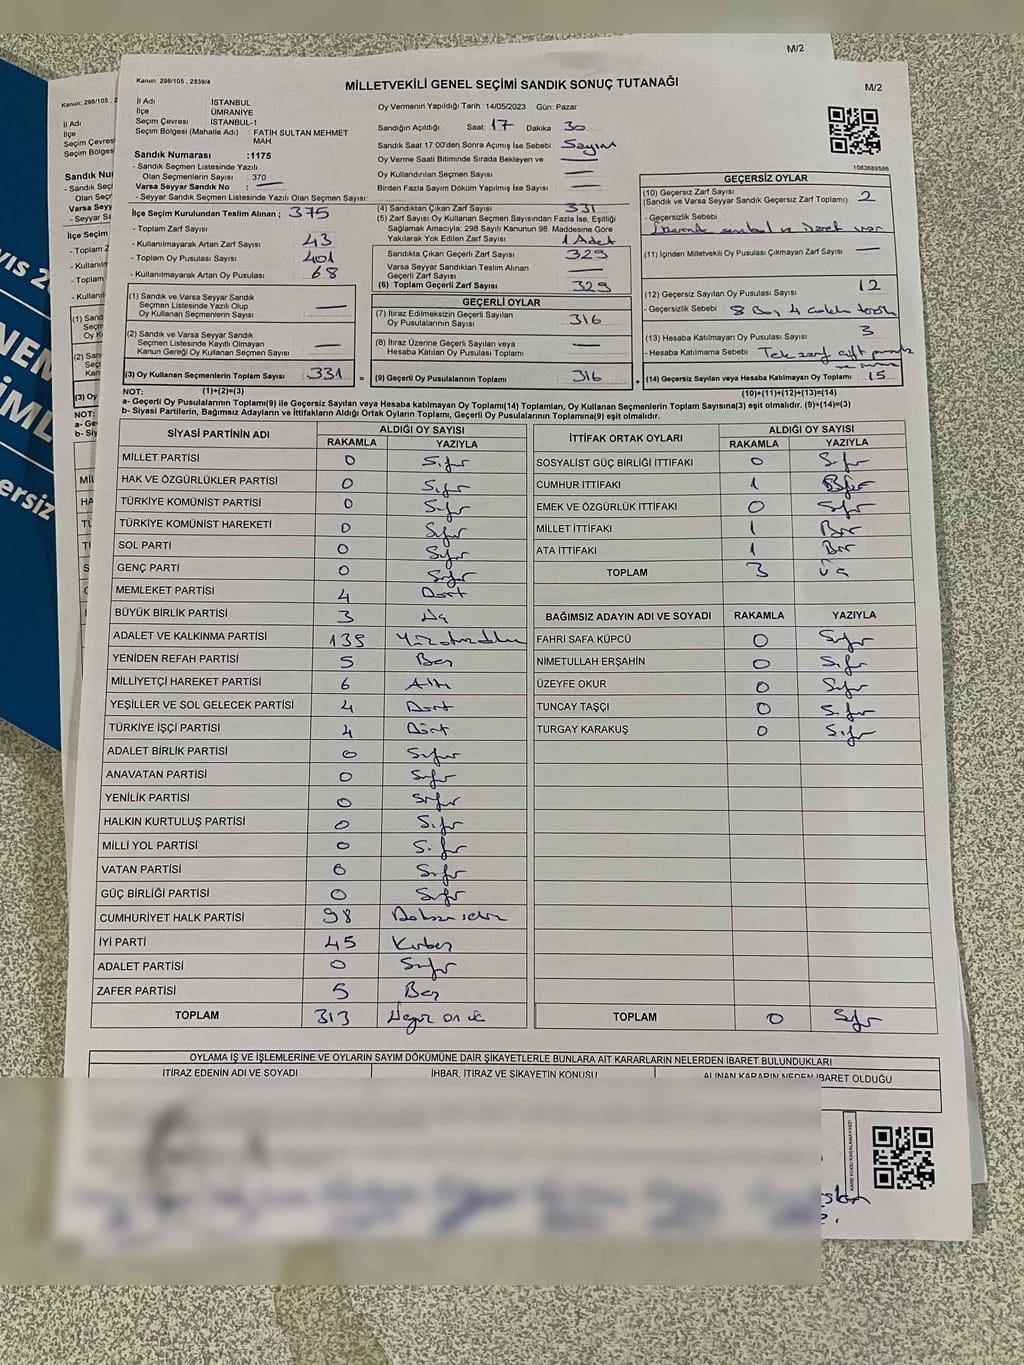 M/2
Kanun: 298/105 , 2839/4
MİLLETVEKİLİ GENEL SEÇİMİ SANDIK SONUÇ TUTANAĞI
M/2
İl Adı : İSTANBUL
İlçe : ÜMRANİYE
Seçim Çevresi : İSTANBUL-1
Seçim Bölgesi (Mahalle Adı) : FATİH SULTAN MEHMET MAH.
Sandık Numarası :1175
- Sandık Seçmen Listesinde Yazılı
Olan Seçmenlerin Sayısı : 370
Varsa Seyyar Sandık No : —
- Seyyar Sandık Seçmen Listesinde Yazılı Olan Seçmen Sayısı
Oy Vermenin Yapıldığı Tarih :14/05/2023 Gün: Pazar
Sandığın Açıldığı Saat: 17 Dakika 30
Sandık Saat 17:00'den Sonra Açımış İse Sebebi Sayım
Oy Verme Saati Bitiminde Sırada Bekleyen ve —
Oy Kullandırılan Seçmen Sayısı —
Birden Fazla Sayım Döküm Yapılmış İse Sayısı —
1083689586
İlçe Seçim Kurulundan Teslim Alınan ; 375
- Toplam Zarf Sayısı
- Kullanılmayarak Artan Zarf Sayısı 43
- Toplam Oy Pusulası Sayısı 401
- Kullanılmayarak Artan Oy Pusulası 68
(1) Sandık ve Varsa Seyyar Sandık
Seçmen Listesinde Yazılı Olup
Oy Kullanan Seçmenlerin Sayısı —
(2) Sandık ve Varsa Seyyar Sandık
Seçmen Listesinde Kayıtlı Olmayan
Kanun Gereği Oy Kullanan Seçmen Sayısı —
(3) Oy Kullanan Seçmenlerin Toplam Sayısı 331 =
(4) Sandıktan Çıkan Zarf Sayısı 331
(5) Zarf Sayısı Oy Kullanan Seçmen Sayısından Fazla İse, Eşitliği
Sağlamak Amacıyla; 298 Sayılı Kanunun 98. Maddesine Göre
Yakılarak Yok Edilen Zarf Sayısı 1 Adet
Sandıkta Çıkan Geçerli Zarf Sayısı 329
Varsa Seyyar Sandıktan Teslim Alınan
Geçerli Zarf Sayısı —
(6) Toplam Geçerli Zarf Sayısı 329
GEÇERLİ OYLAR
(7) İtiraz Edilmeksizin Geçerli Sayılan
Oy Pusulalarının Sayısı 316
(8) İtiraz Üzerine Geçerli Sayılan veya
Hesaba Katılan Oy Pusulası Toplamı —
(9) Geçerli Oy Pusulalarının Toplamı 316 +
GEÇERSİZ OYLAR
(10) Geçersiz Zarf Sayısı
(Sandık ve Varsa Seyyar Sandık Geçersiz Zarf Toplamı) 2
- Geçersizlik Sebebi
(11) İçinden Milletvekili Oy Pusulası Çıkmayan Zarf Sayısı —
(12) Geçersiz Sayılan Oy Pusulası Sayısı 12
- Geçersizlik Sebebi : 8 Boş 4
(13) Hesaba Katılmayan Oy Pusulası Sayısı 3
- Hesaba Katılmama Sebebi Tek zarf çift
(14) Geçersiz Sayılan veya Hesaba Katılmayan Oy Toplamı : 15
NOT: (1)+(2)=(3) (10)+(11)+(12)+(13)=(14)
a- Geçerli Oy Pusulalarının Toplamı(9) ile Geçersiz Sayılan veya Hesaba Katılmayan Oy Toplamı(14) Toplamları, Oy Kullanan Seçmenlerin Toplam Sayısına(3) eşit olmalıdır. (9)+(14)=(3)
b- Siyasi Partilerin, Bağımsız Adayların ve İttifakların Aldığı Ortak Oyların Toplamı, Geçerli Oy Pusulalarının Toplamına(9) eşit olmalıdır.
SİYASİ PARTİNİN ADI ALDIĞI OY SAYISI
RAKAMLA YAZIYLA
MİLLET PARTİSİ 0 Sıfır
HAK VE ÖZGÜRLÜKLER PARTİSİ 0 Sıfır
TÜRKİYE KOMÜNİST PARTİSİ 0 Sıfır
TÜRKİYE KOMÜNİST HAREKETİ 0 Sıfır
SOL PARTİ 0 Sıfır
GENÇ PARTİ 0 Sıfır
MEMLEKET PARTİSİ 4 Dört
BÜYÜK BİRLİK PARTİSİ 3 Üç
ADALET VE KALKINMA PARTİSİ 139
YENİDEN REFAH PARTİSİ 5 Beş
MİLLİYETÇİ HAREKET PARTİSİ 6 Altı
YEŞİLLER VE SOL GELECEK PARTİSİ 4 Dört
TÜRKİYE İŞÇİ PARTİSİ 4 Dört
ADALET BİRLİK PARTİSİ 0 Sıfır
ANAVATAN PARTİSİ 0 Sıfır
YENİLİK PARTİSİ 0 Sıfır
HALKIN KURTULUŞ PARTİSİ 0 Sıfır
MİLLİ YOL PARTİSİ 0 Sıfır
VATAN PARTİSİ 0 Sıfır
GÜÇ BİRLİĞİ PARTİSİ 0 Sıfır
CUMHURİYET HALK PARTİSİ 98 Doksan sekiz
İYİ PARTİ 45 Kırkbeş
ADALET PARTİSİ 0 Sıfır
ZAFER PARTİSİ 5 Beş
TOPLAM 313 Üçyüz on üç
İTTİFAK ORTAK OYLARI ALDIĞI OY SAYISI
RAKAMLA YAZIYLA
SOSYALİST GÜÇ BİRLİĞİ İTTİFAKI 0 Sıfır
CUMHUR İTTİFAKI 1 Bir
EMEK VE ÖZGÜRLÜK İTTİFAKI 0 Sıfır
MİLLET İTTİFAKI 1 Bir
ATA İTTİFAKI 1 Bir
TOPLAM 3 Üç
BAĞIMSIZ ADAYIN ADI VE SOYADI RAKAMLA YAZIYLA
FAHRİ SAFA KÜPCÜ 0 Sıfır
NİMETULLAH ERŞAHİN 0 Sıfır
ÜZEYFE OKUR 0 Sıfır
TUNCAY TAŞÇI 0 Sıfır
TURGAY KARAKUŞ 0 Sıfır
TOPLAM 0 Sıfır
OYLAMA İŞ VE İŞLEMLERİNE VE OYLARIN SAYIM DÖKÜMÜNE DAİR ŞİKAYETLERLE BUNLARA AİT KARARLARIN NELERDEN İBARET BULUNDUKLARI
İTİRAZ EDENİN ADI VE SOYADI İHBAR, İTİRAZ VE ŞİKAYETİN KONUSU ALINAN KARARIN NEDEN İBARET OLDUĞU
KARE KODU KARALAMAYINIZ!